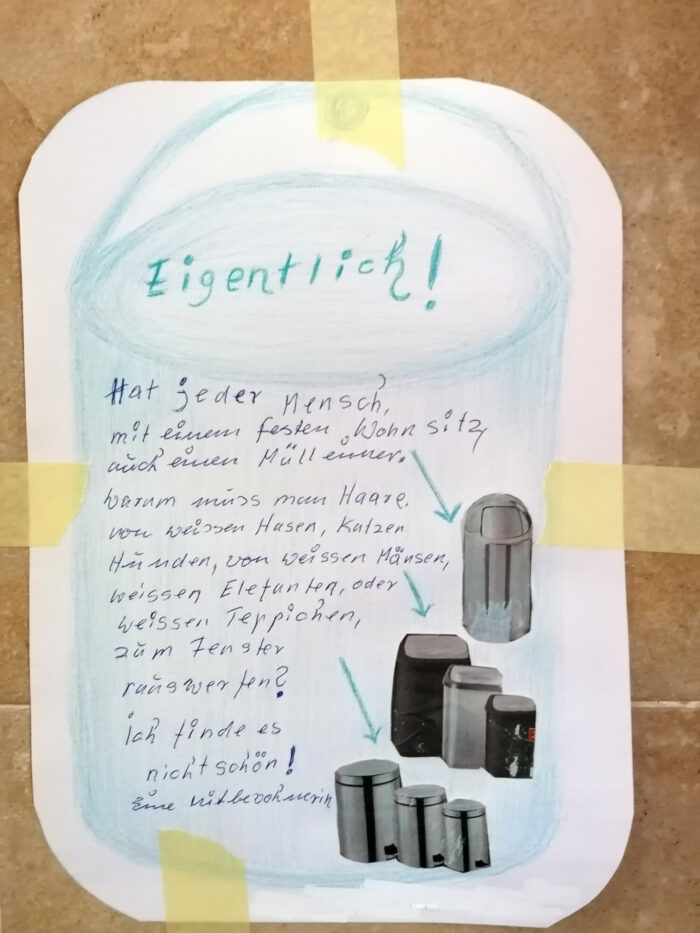 Eigentlich!
Hat jeder Mensch,
mit einem festen Wohnsitz,
auch einen Mülleimer.
Warum muss man Haare
von weissen Hasen, Katzen
Hunden, von weissen Mäusen,
weissen Elefanten, oder
weissen Teppichen,
zum Fenster
rauswerfen?
Ich finde es
nicht schön!
Eine Mitbewohnerin